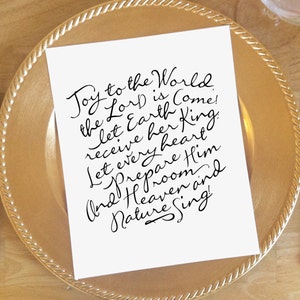 Joy to the World
the Lord is Come!
let Earth
receive her King.
Let every heart
Prepare Him
And Room
Heaven and
Nature Sing!